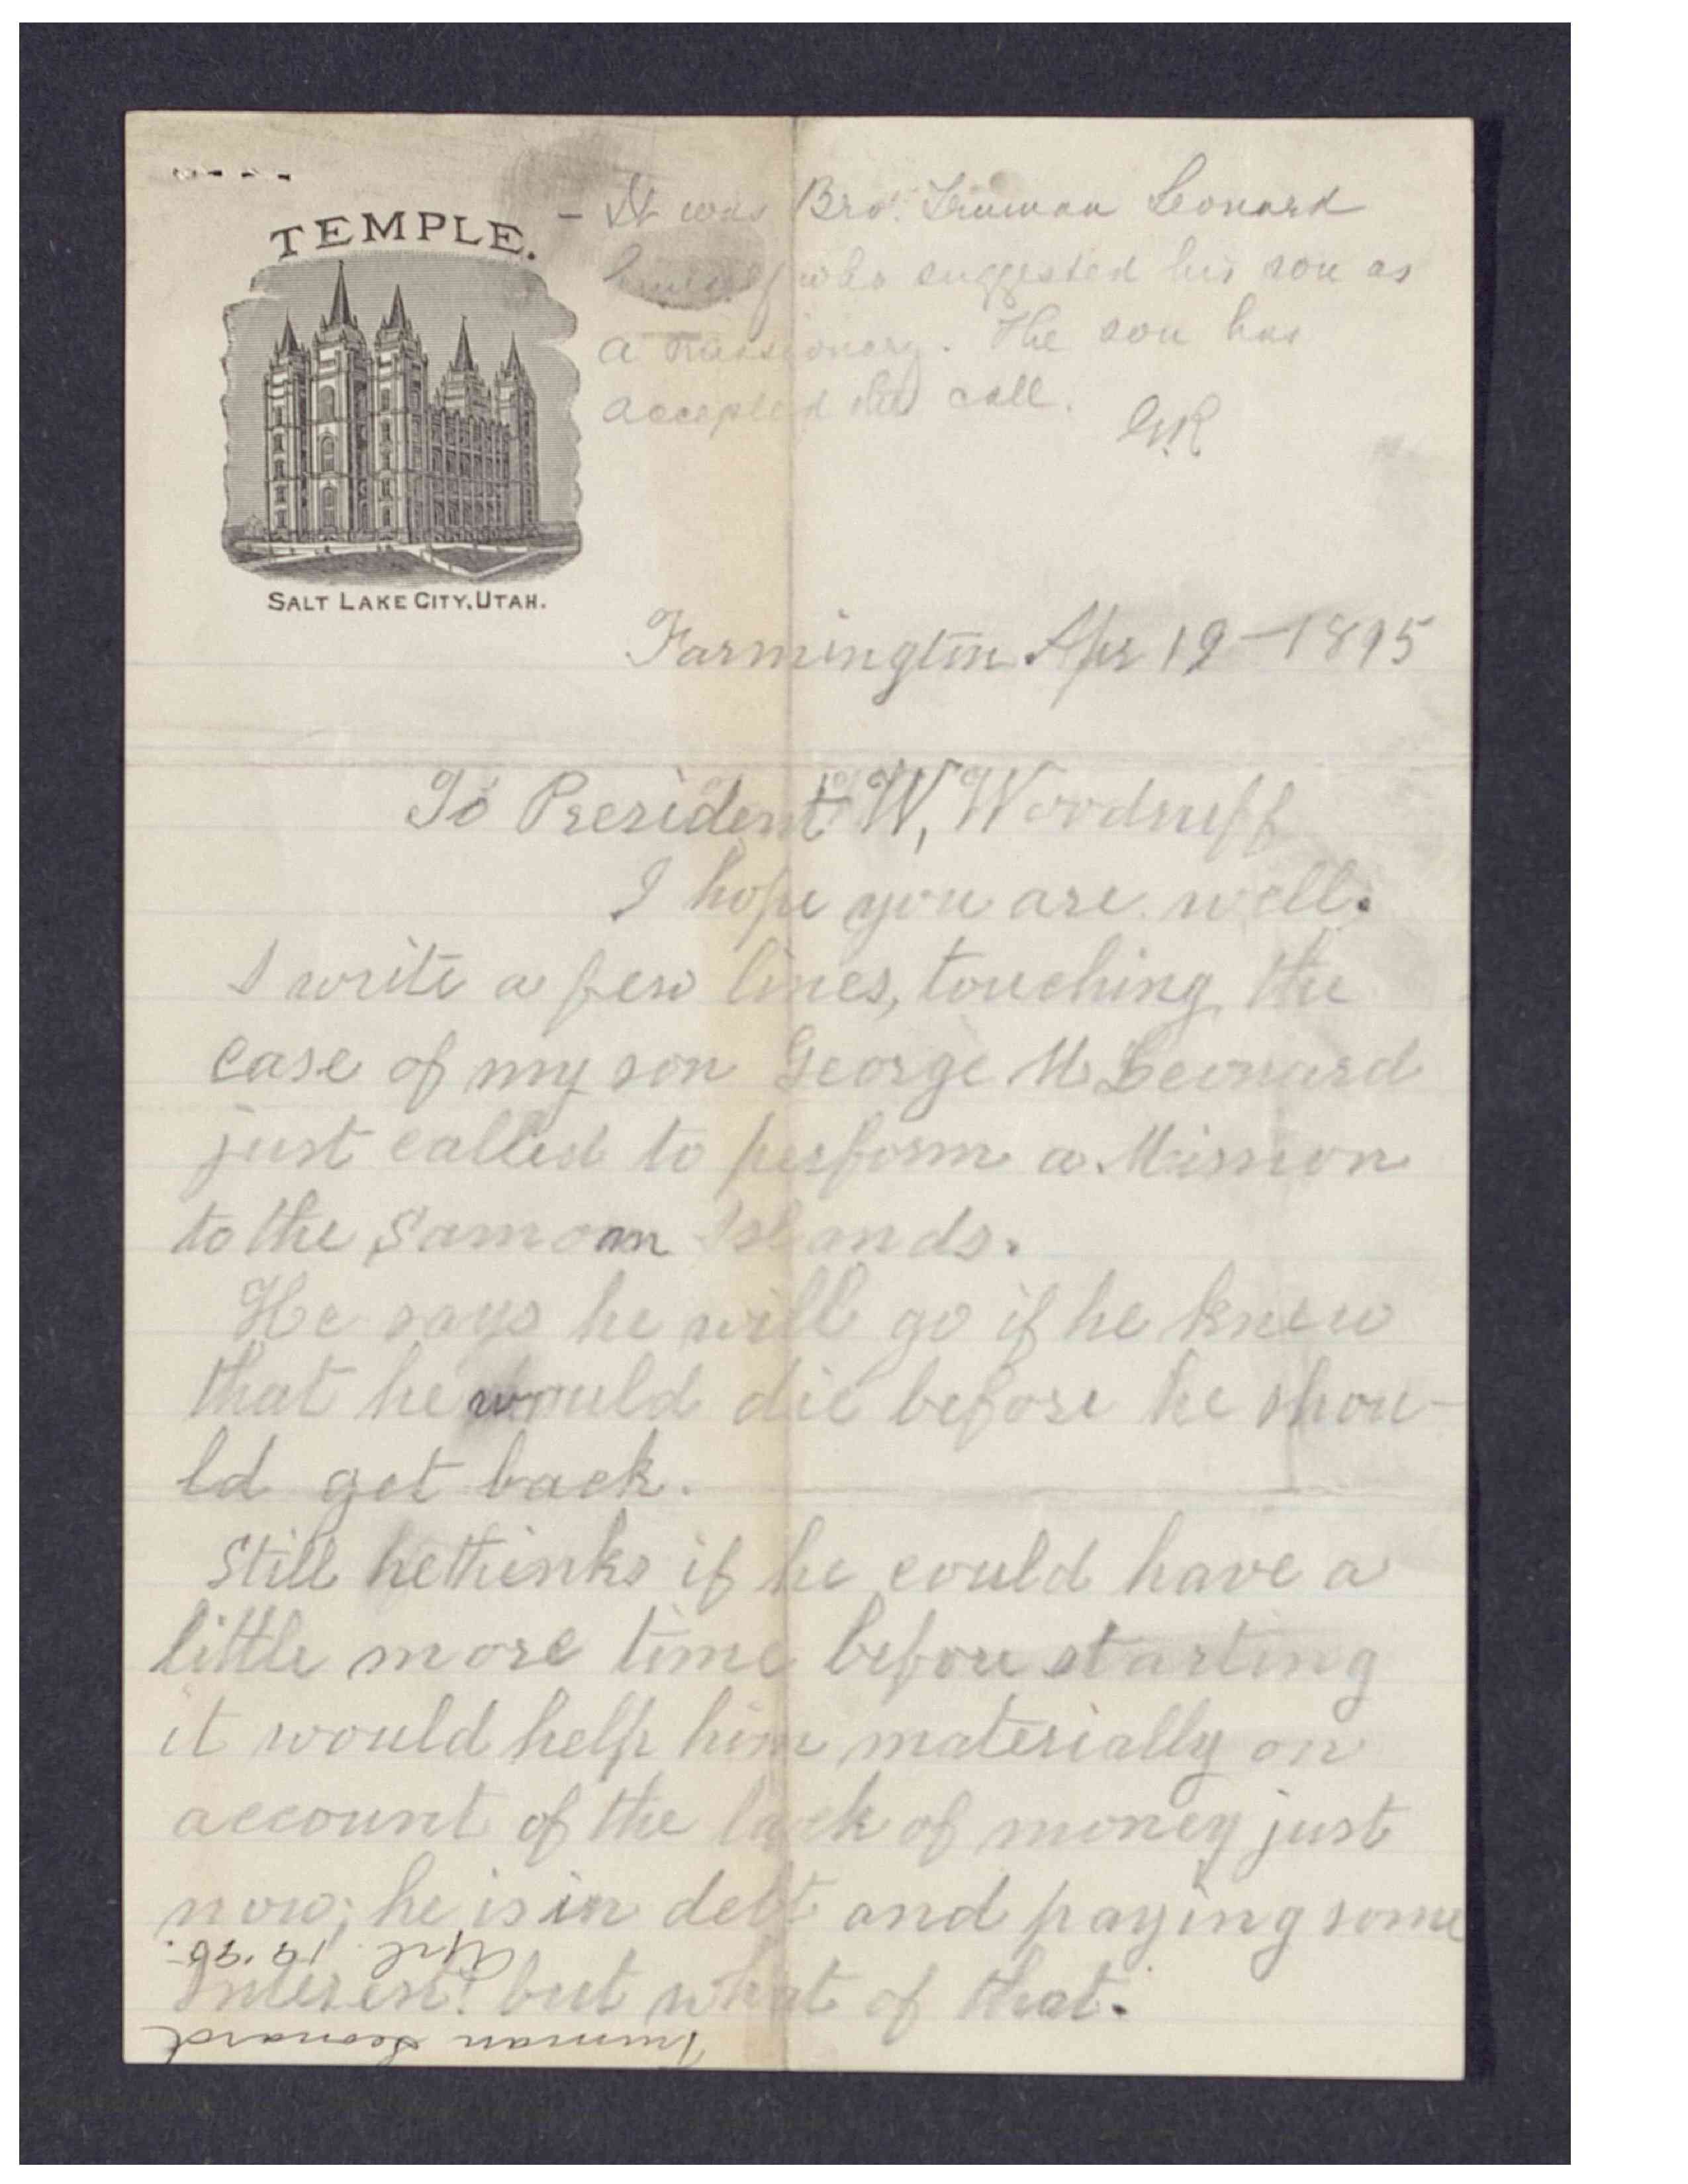 TEMPLE.
SALT LAKE CITY, UTAH.
- It was Bro. Truman Leonard
himself who suggested his son as
a missionary. The son has
accepted the call.
GR
Farmington Apr 19-1895
To President W, Woodruff
I hope you are well.
I write a few lines, touching the
case of my son George M Leonard
just called to perform a Mission
to the Samoan Islands.
He says he will go if he knew
that he would die before he shou-
ld get back.
Still he thinks if he could have a
little more time before starting
it would help him materially on
account of the lack of money just
now; he is in debt and paying some
Interest! but what of that.
Truman Leonard
Apl. 19. 95.